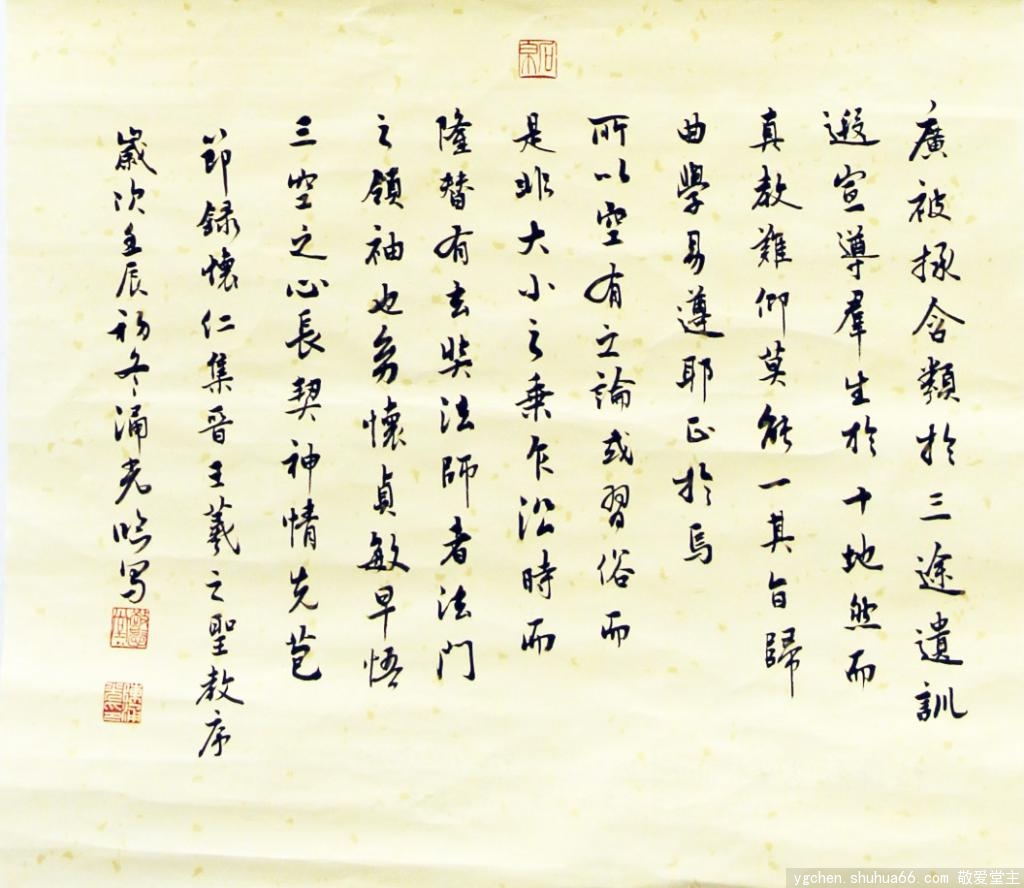 廣被拯含類於三途遺訓
遐宣導羣生於十地然而
真教難仰莫能一其旨歸
曲學易遵耶正於焉
所以空有之論或習俗而
是非大小之乘乍沿時而
隆替有玄奘法師者法門
之領袖也幼懷貞敏早悟
三空之心長契神情先苞
節録懷仁集晉王羲之聖教序
歲次壬辰初冬涌光臨写
ygchen.shuhua66.com 敬爱堂主